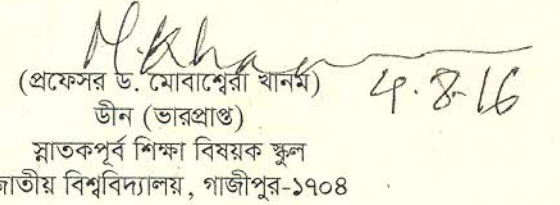 M. Khan
(প্রফেসর ড. মোবাশ্বেরা খানম) 4.8.16
ডীন (ভারপ্রাপ্ত)
স্নাতকপূর্ব শিক্ষা বিষয়ক স্কুল
জাতীয় বিশ্ববিদ্যালয়, গাজীপুর-১৭০৪